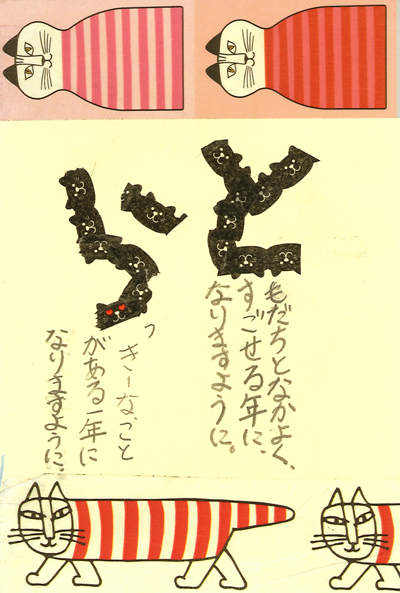 と
もだちとなかよく、
すごせる年に、
なりますように。
ら
っきーなこと
がある一年に
なりますように。